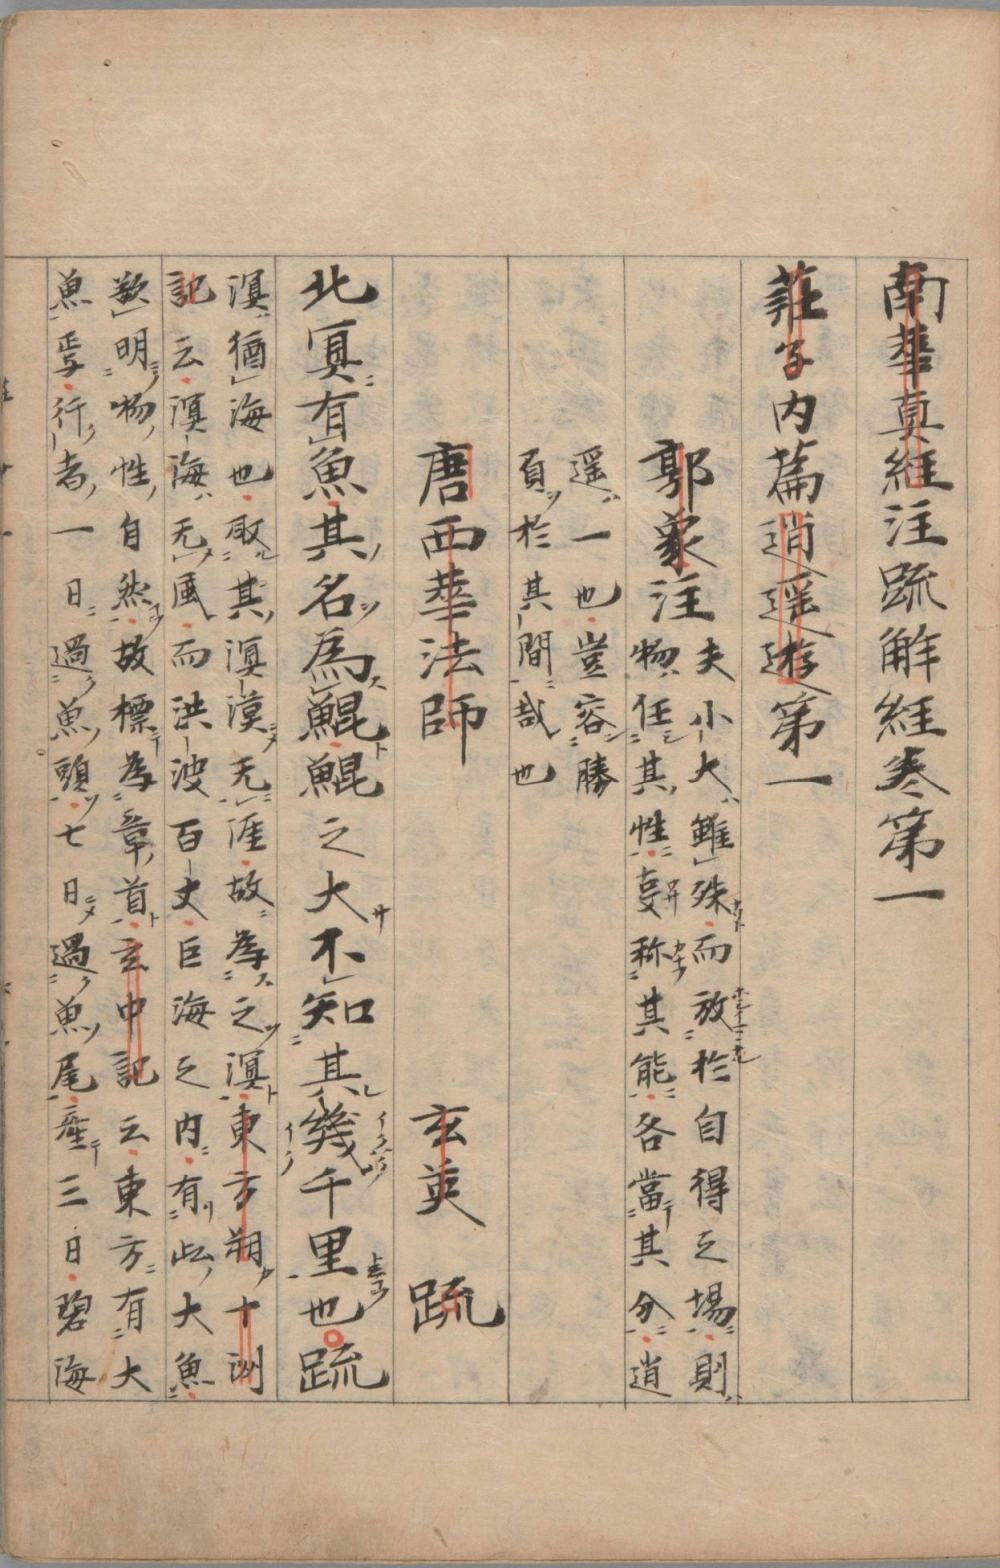 南華真經注疏解經卷第一
莊子內篇逍遙遊第一
郭象注
夫小大雖殊而放於自得之場則
物任其性事稱其能各當其分逍
遙一也豈容勝
負於其間哉也
唐西華法師 玄英 疏
北冥有魚其名為鯤鯤之大不知其幾千里也疏
溟猶海也取其溟漠无涯故為之溟東方朔十洲
記云溟海无風而洪波百丈巨海之内有此大魚
欲明物性自然故標為章首玄中記云東方有大
魚焉行者一日過魚頭七日過魚尾産三日碧海